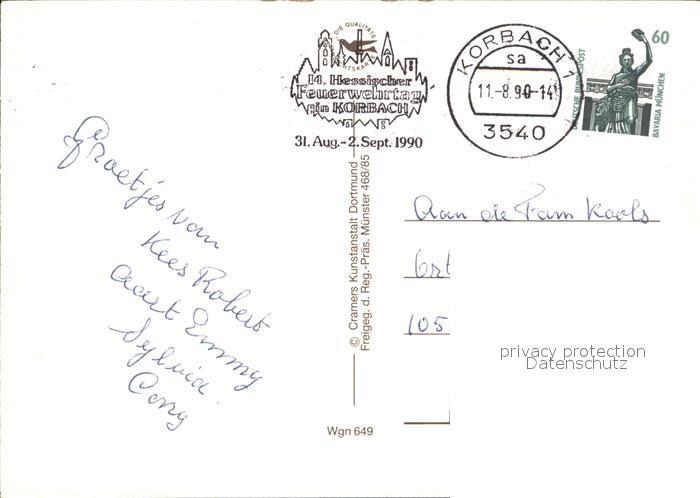 DIE QUALITÄTS
14. Hessischer
Feuerwehrtag
in KORBACH
31. Aug.-2. Sept. 1990
KORBACH 1
sa
11.-8.90-14
3540
60
DEUTSCHE BUNDESPOST
BAVARIA MÜNCHEN
Groetjes van
Kees Robert
Aart Emmy
Sylvia
Corry
© Cramers Kunstanstalt Dortmund
Freigeg. d. Reg.-Präs. Münster 468/85
Wgn 649
Aan de Fam Kools
105
privacy protection
Datenschutz